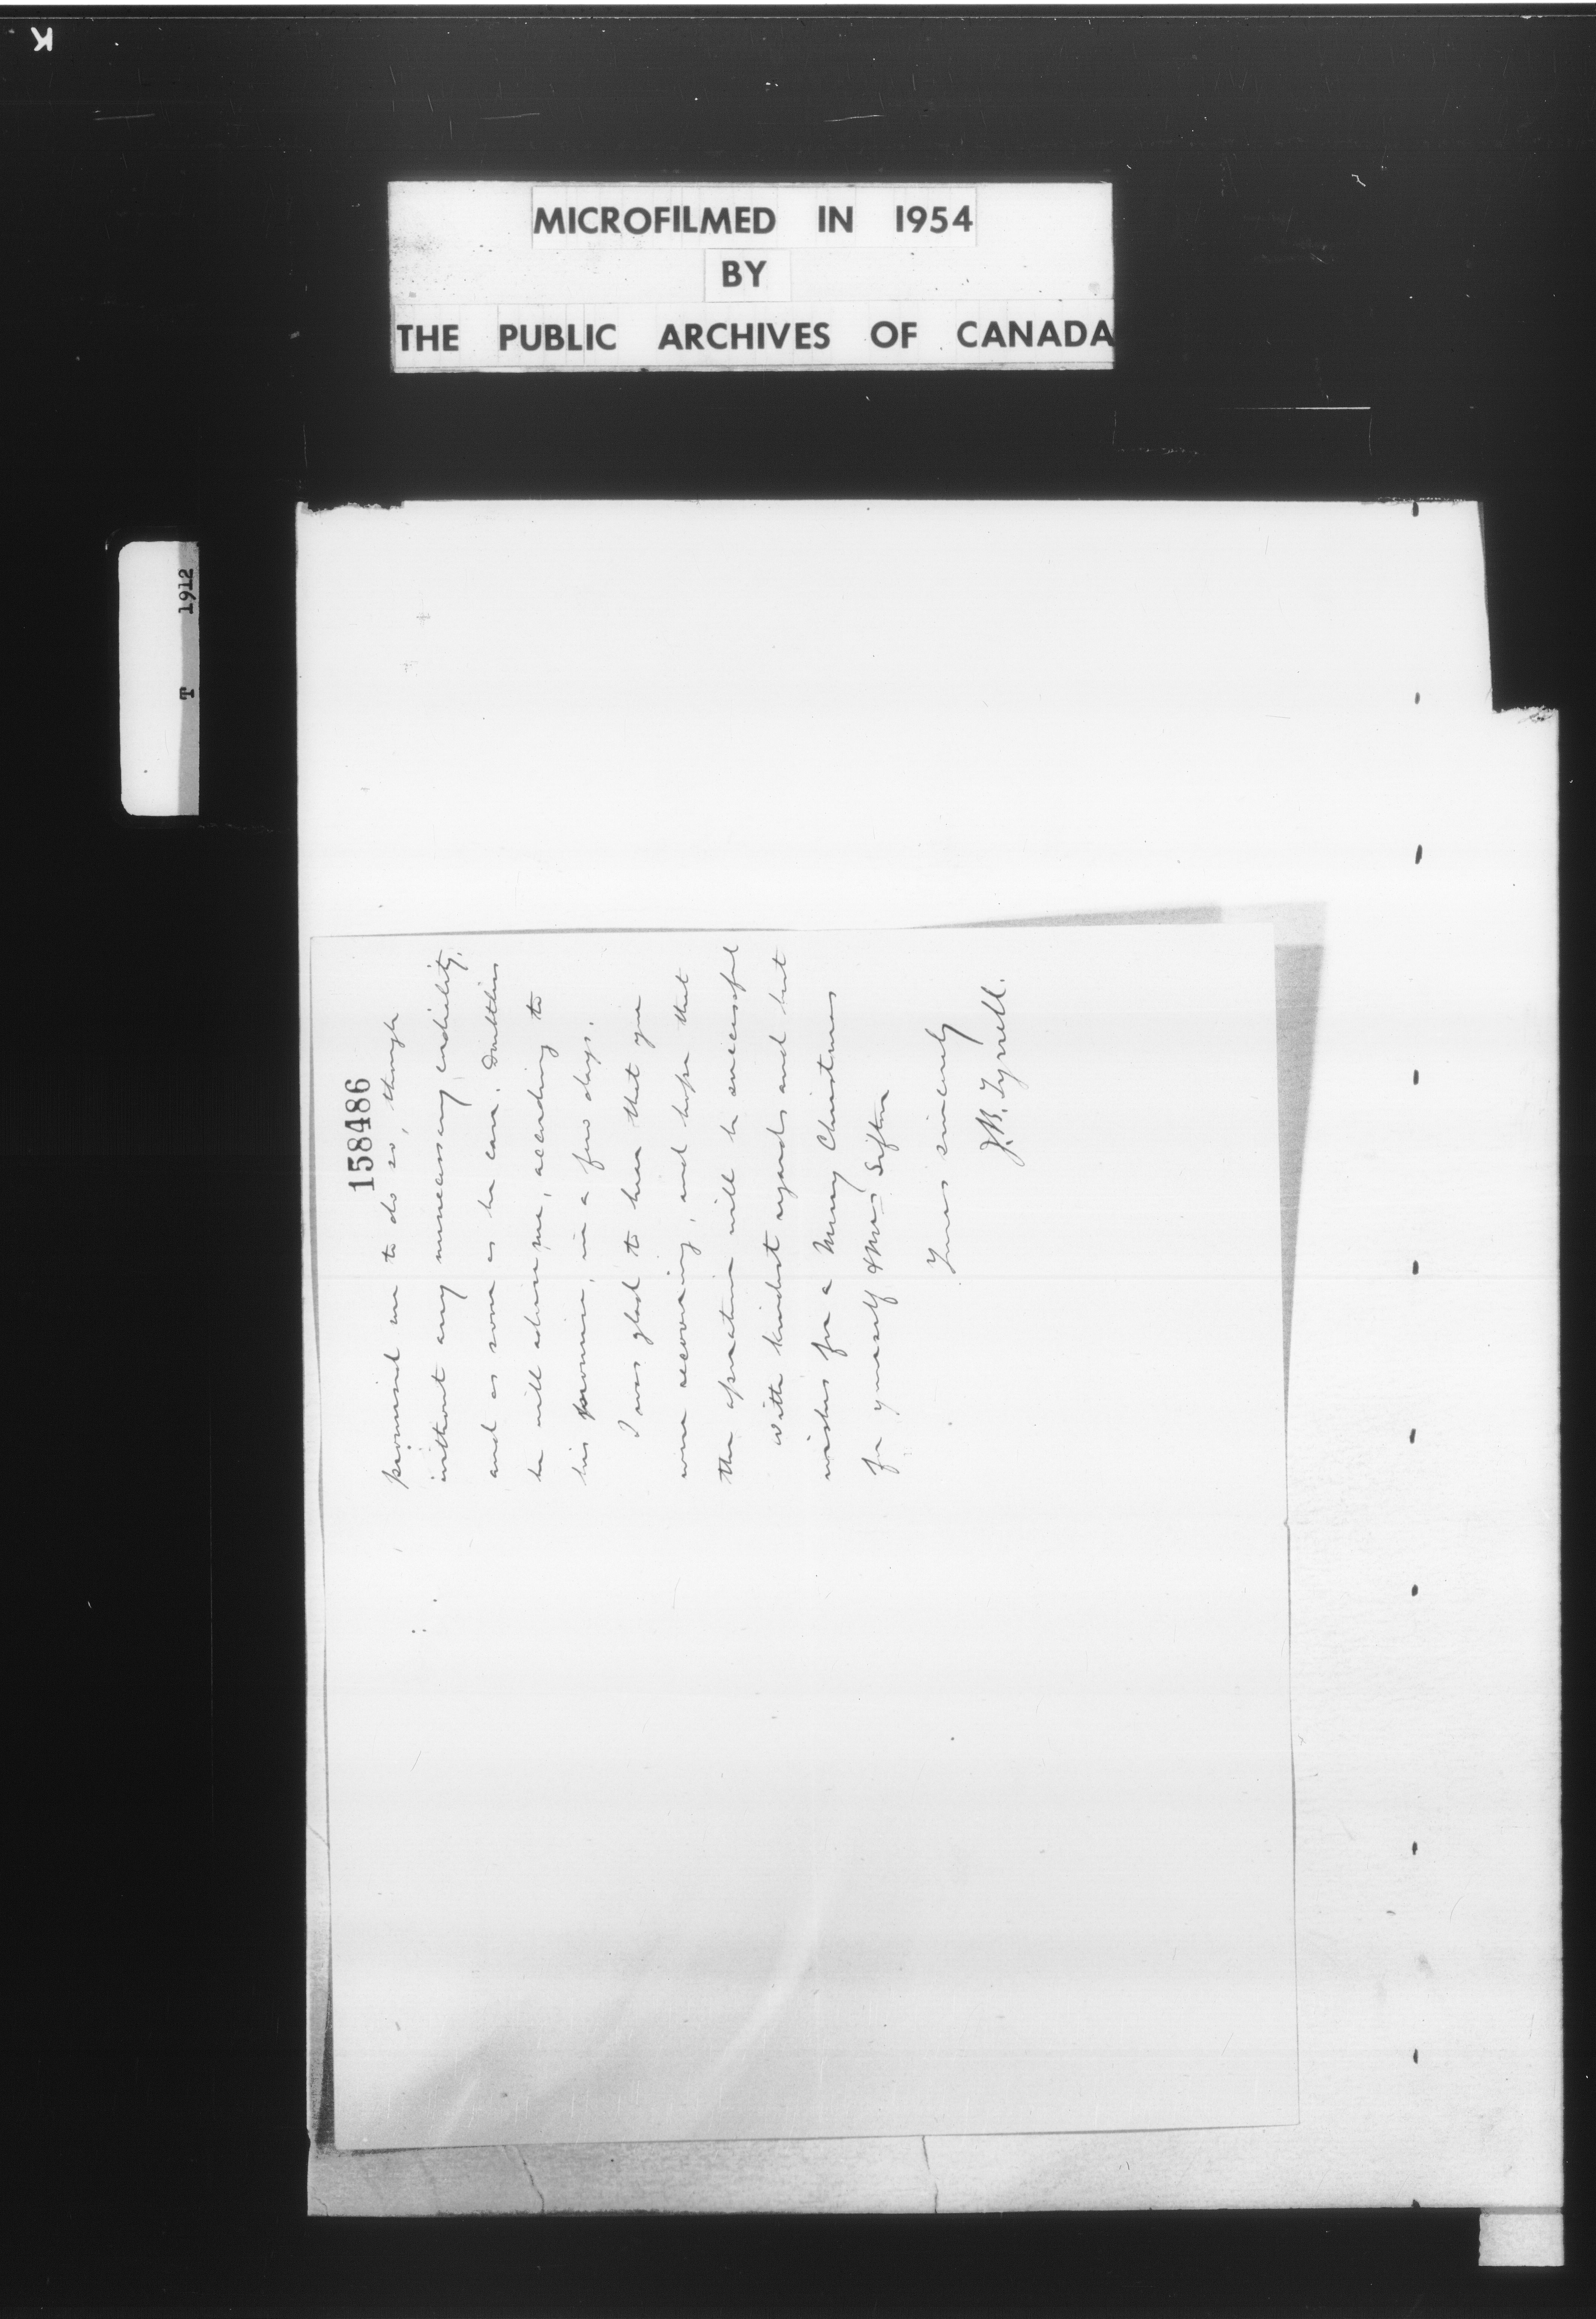 K
MICROFILMED IN 1954
BY
THE PUBLIC ARCHIVES OF CANADA
T 1912
158486
promised me to do so, though
without any unnecessary
and as soon as he can. Doubtless
he will advise me, according to
his promise, in a few days.
I was glad to hear that you
were recovering, and hope that
the operation will be successful
With kindest regards and best
wishes for a Merry Christmas
for yourself & Mrs Sifton
Yours sincerely
J.B. Tyrrell.